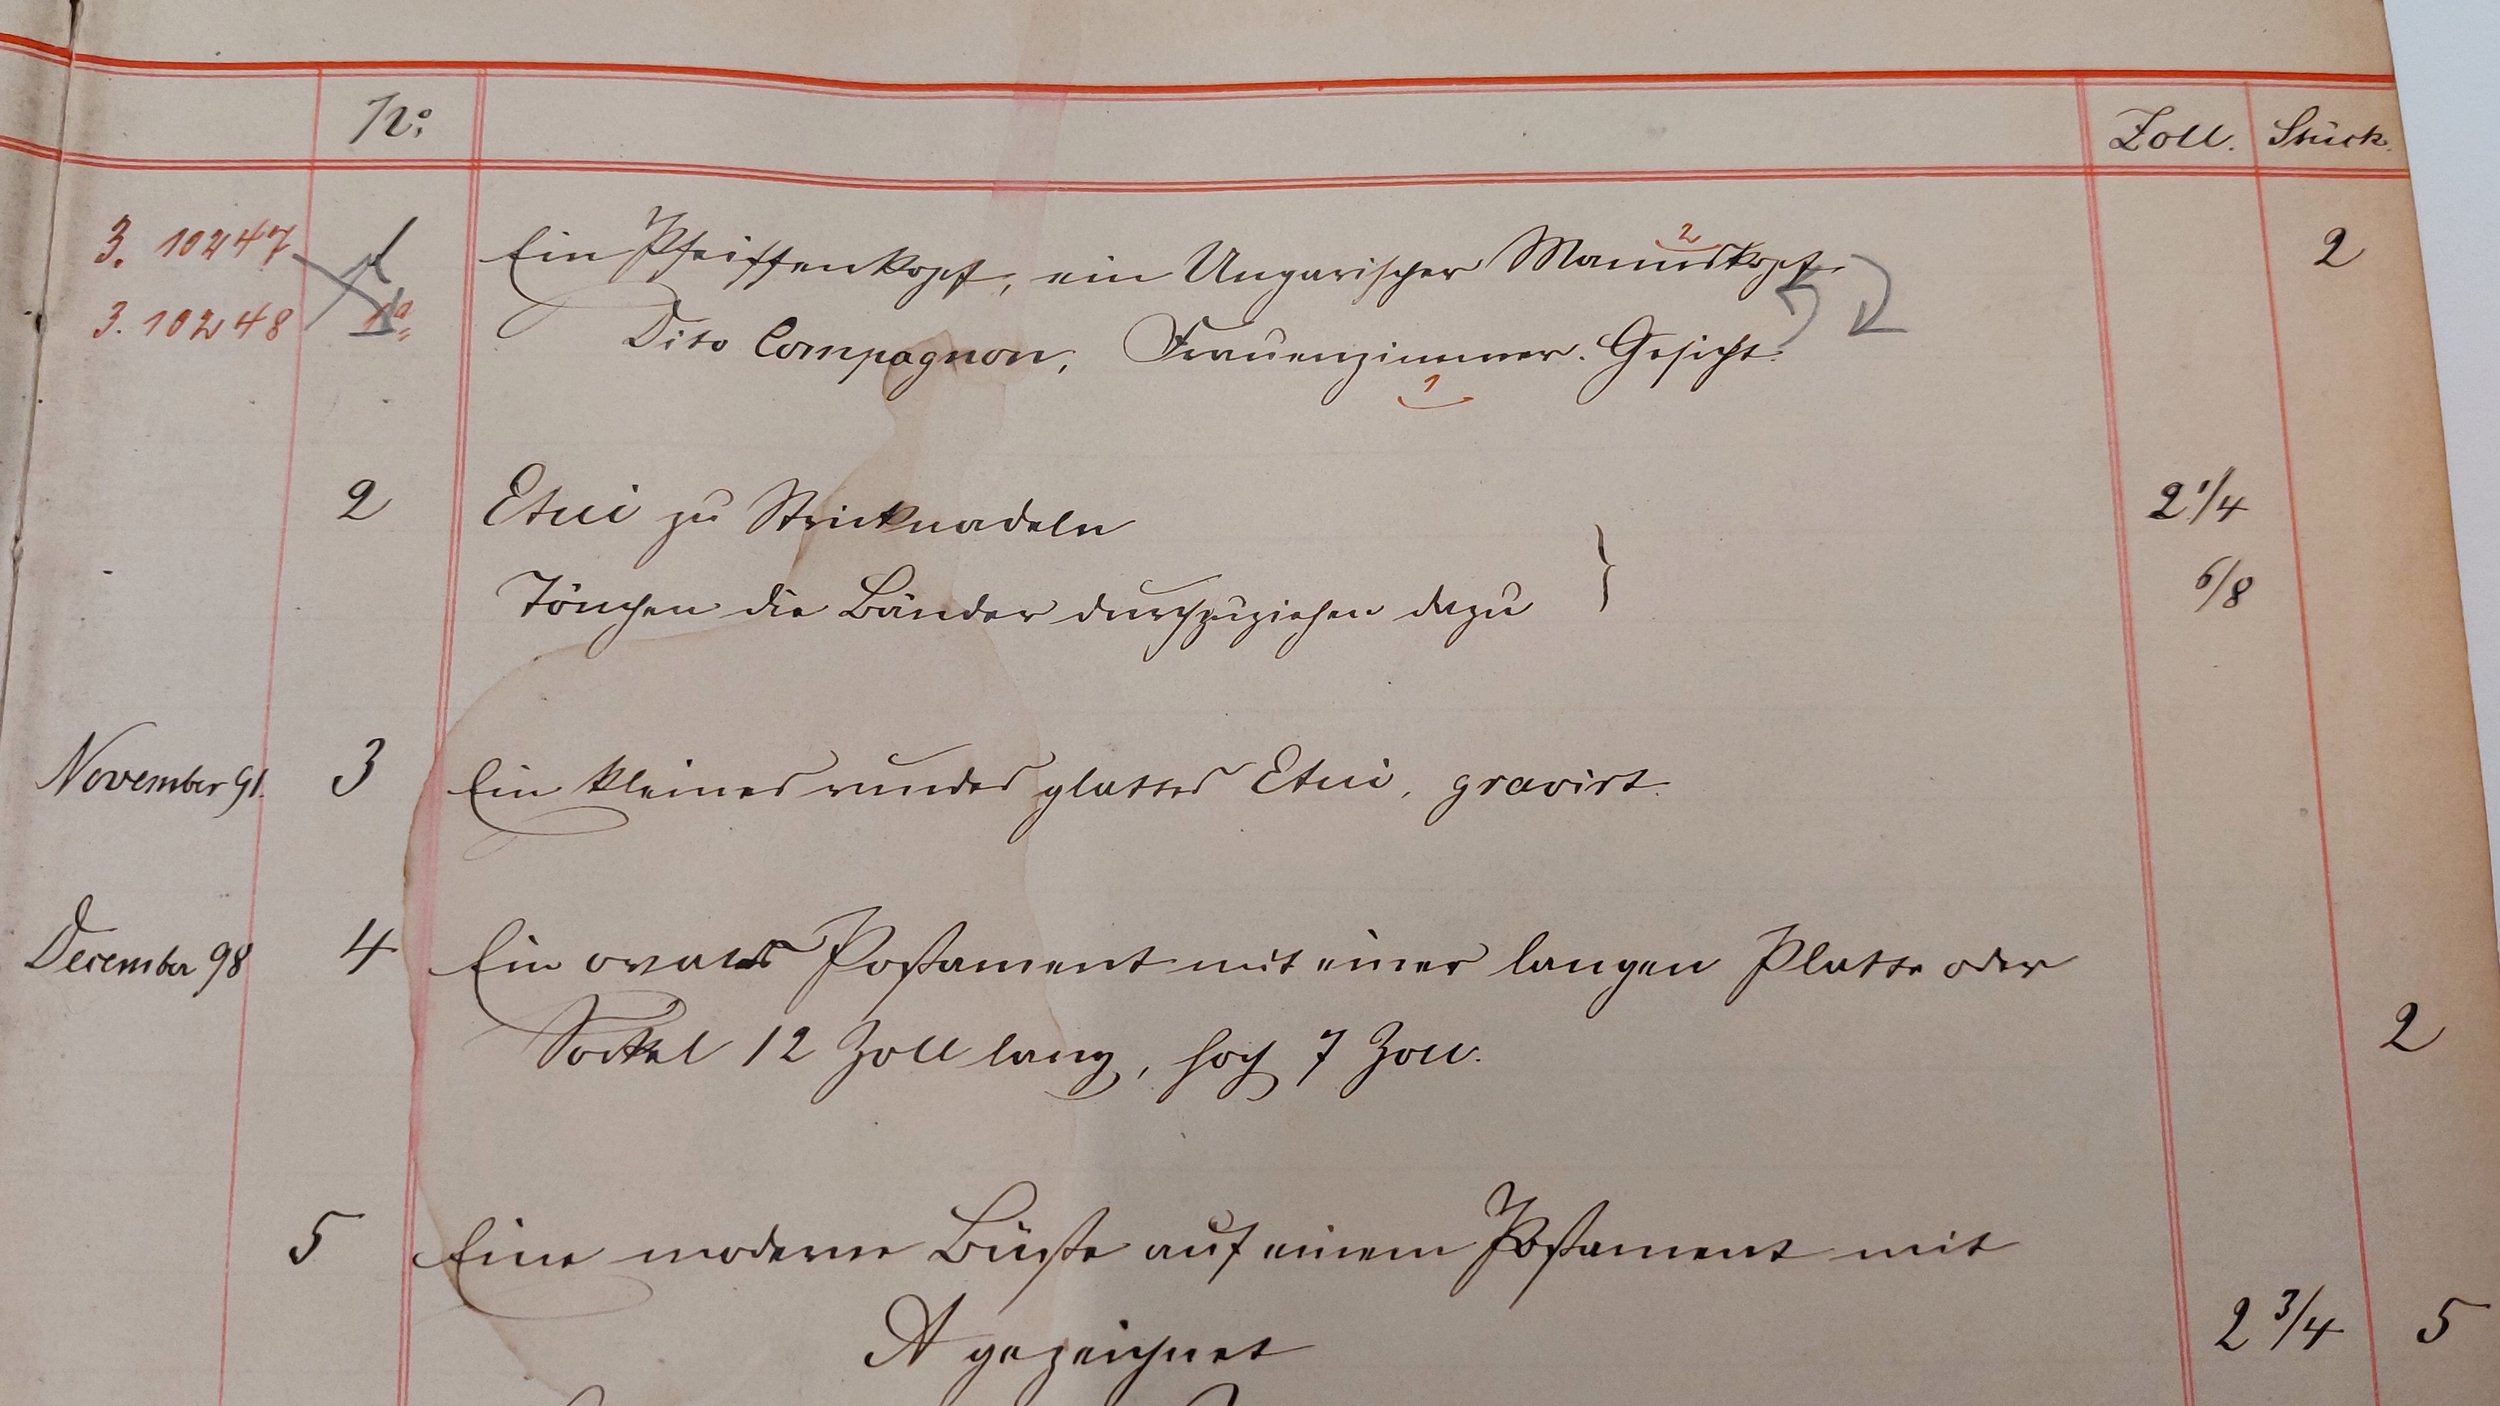 No: Zoll. Stück.
3. 10247 1 Ein Pfeiffenkopf, ein Ungarischer Mannskopf. 2
2
3. 10248 1a Dito Compagnon, Frauenzimmer. Gesicht.
1
2 Etui zu Stricknadeln 2 1/4
Tönchen die Bänder durchzuziehen dazu } 6/8
November 91. 3 Ein kleines rundes glattes Etui, gravirt.
December 98 4 Ein ovales Postament mit einer langen Platte oder
Sockel 12 Zoll lang, hoch 7 Zoll. 2
5 Eine moderne Büste auf einem Postament mit
A gezeichnet 2 3/4 5